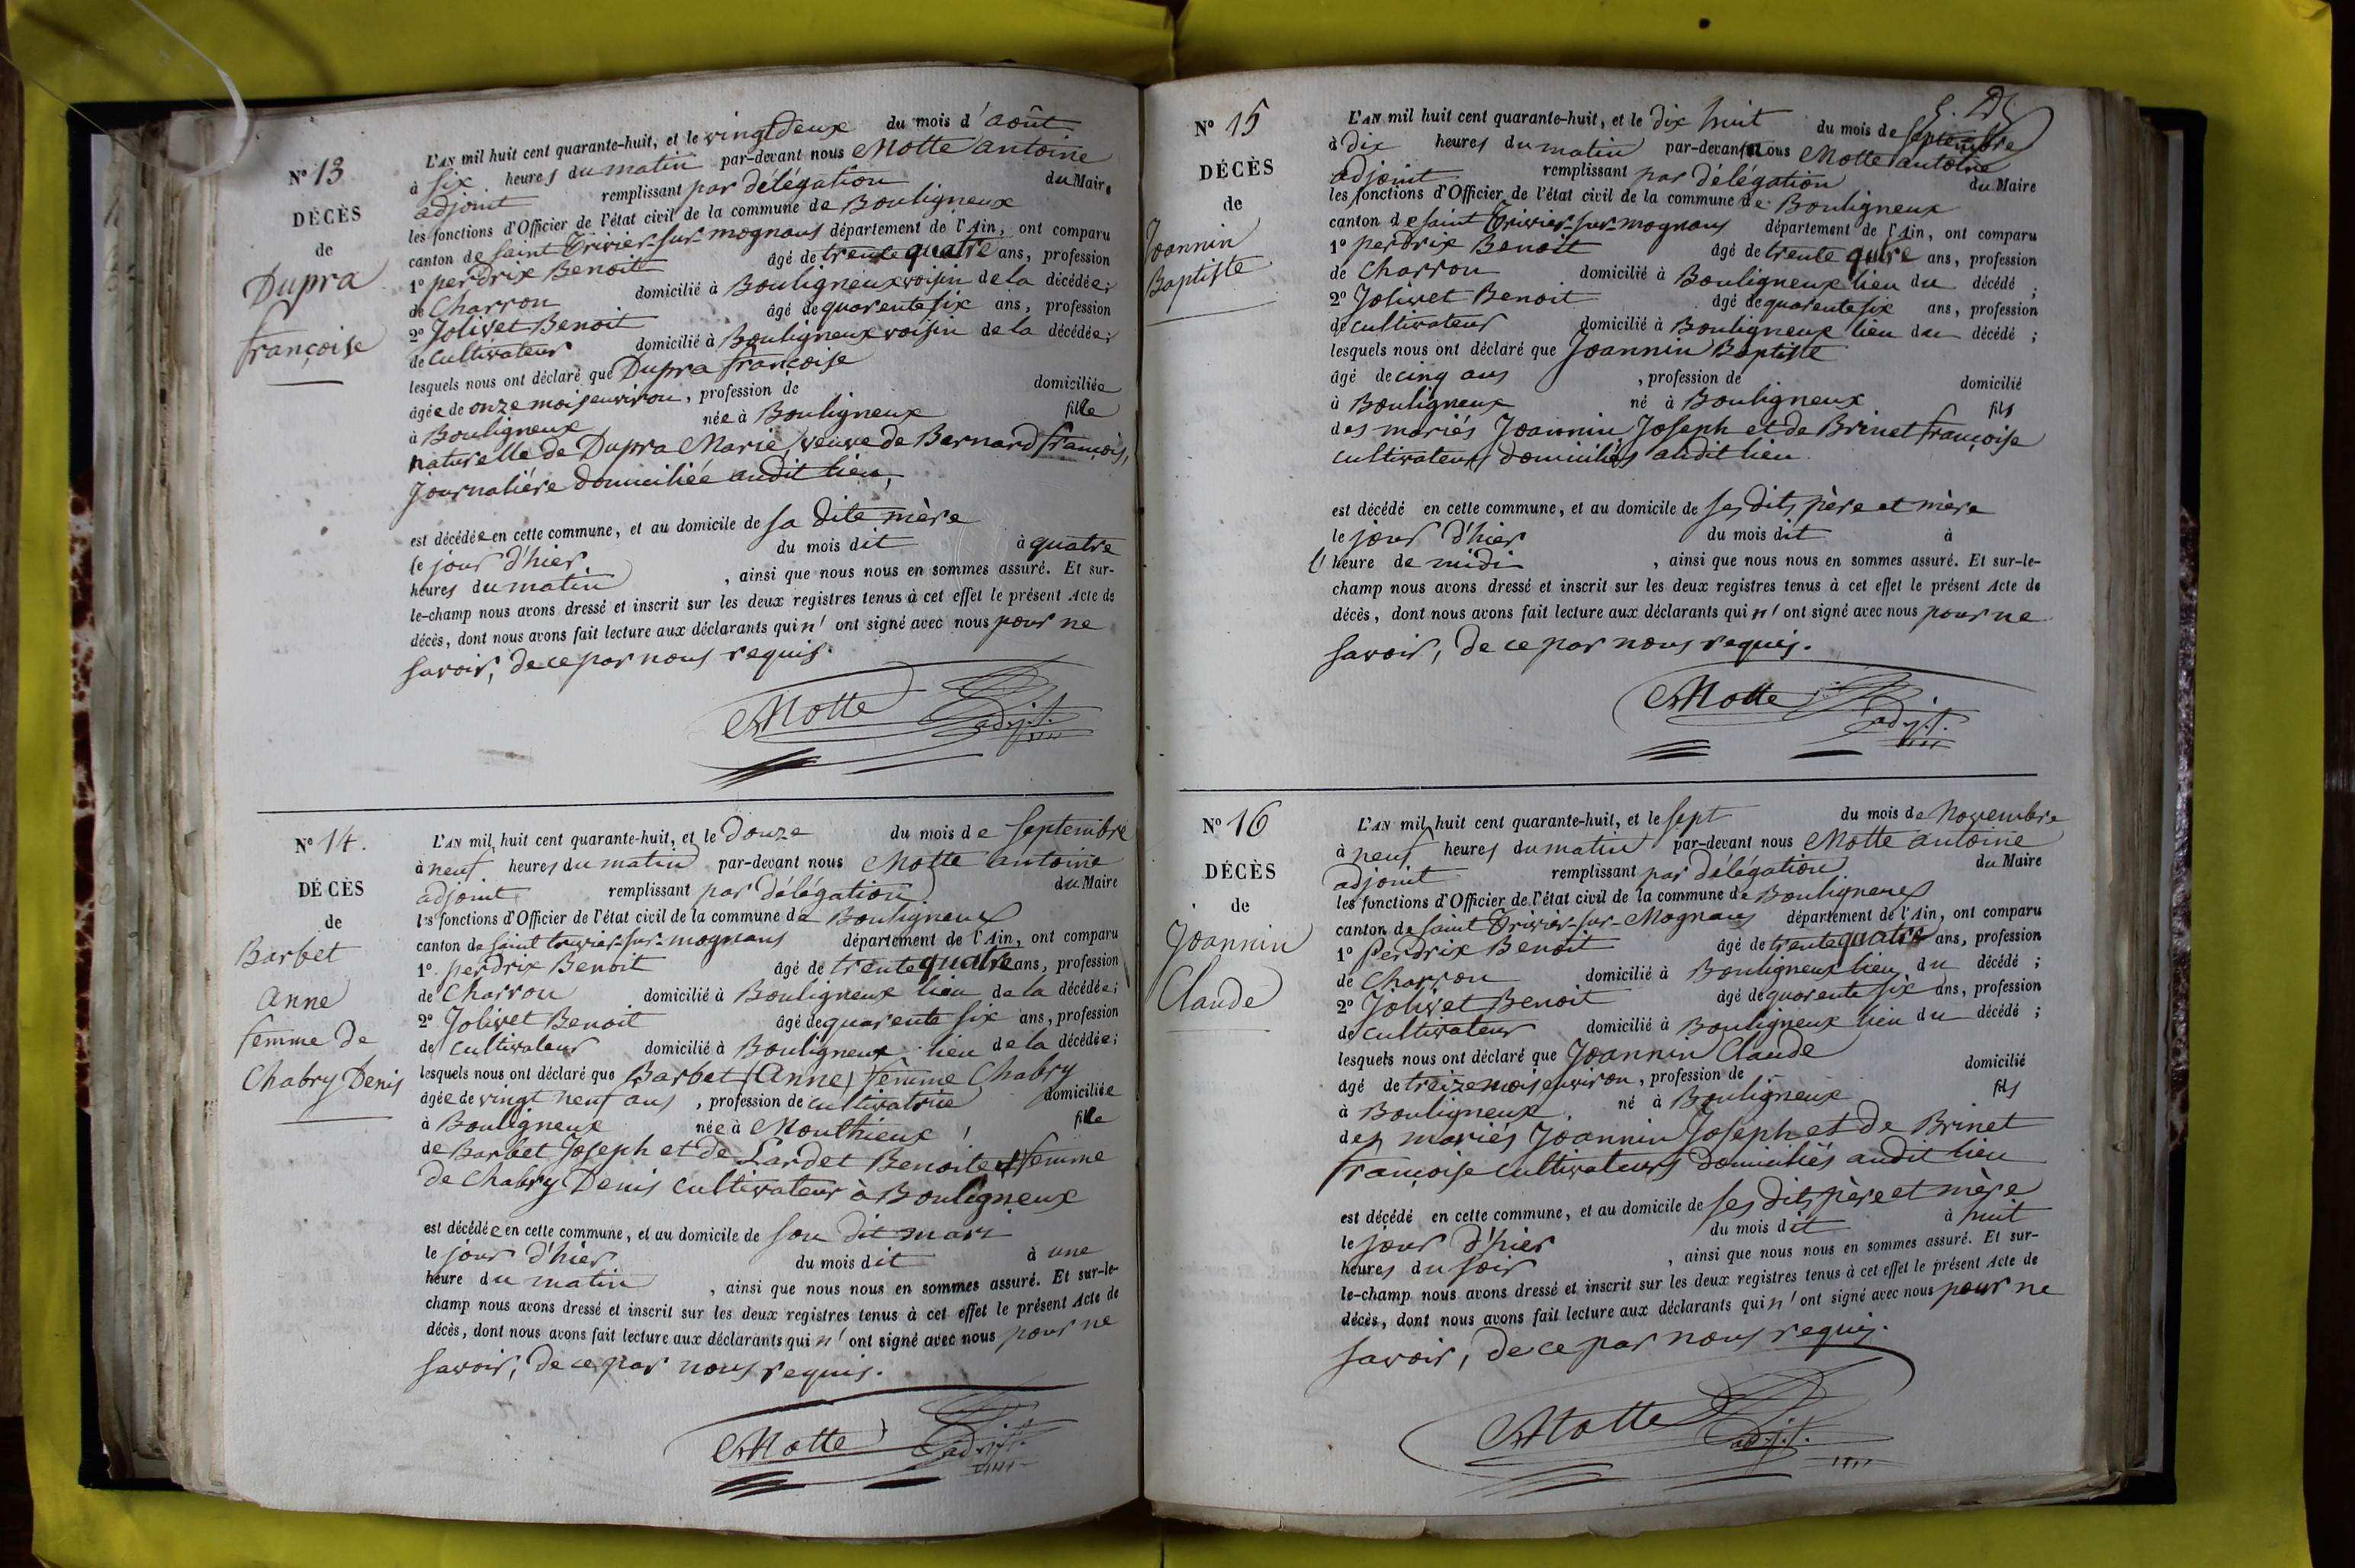 N° 13
DÉCÈS
de
Dupra
françoise
L'AN mil huit cent quarante-huit, et le vingt deux du mois d'août
à six heures du matin par-devant nous Motte antoine
adjoint remplissant par délégation du Maire
les fonctions d'Officier de l'état civil de la commune de Bouligneux
canton de Saint Trivier-sur-mognans département de l'Ain, ont comparu
1° perdrix Benoit âgé de trente quatre ans, profession
de Charron domicilié à Bouligneux voisin de la décédée;
2° Jolivet Benoit âgé de quarente six ans, profession
de Cultivateur domicilié à Bouligneux voisin de la décédée;
lesquels nous ont déclaré que Dupra françoise
âgée de onze mois environ, profession de domiciliée
à Bouligneux née à Bouligneux fille
naturelle de Dupra Marie, veuve de Bernard françois,
Journalière domiciliée audit lieu,
est décédée en cette commune, et au domicile de sa dite mère
le jour d'hier du mois dit à quatre
heures du matin , ainsi que nous nous en sommes assuré. Et sur-
le-champ nous avons dressé et inscrit sur les deux registres tenus à cet effet le présent Acte de
décès, dont nous avons fait lecture aux déclarants qui n'ont signé avec nous pour ne
savoir, de ce par nous requis.
Motte adj.t.
N° 14.
DÉCÈS
de
Barbet
anne
femme de
Chabry Denis
L'AN mil huit cent quarante-huit, et le Douze du mois de septembre
à neuf heures du matin par-devant nous Motte antoine
adjoint remplissant par délégation du Maire
les fonctions d'Officier de l'état civil de la commune de Bouligneux
canton de saint trivier-sur-mognans département de l'Ain, ont comparu
1° perdrix Benoit âgé de trente quatre ans, profession
de Charron domicilié à Bouligneux lieu de la décédée;
2° Jolivet Benoit âgé de quarente six ans, profession
de cultivateur domicilié à Bouligneux lieu de la décédée;
lesquels nous ont déclaré que Barbet (Anne) femme Chabry
âgée de vingt neuf ans , profession de cultivatrice domiciliée
à Bouligneux née à Monthieux fille
de Barbet Joseph et de Lardet Benoite et femme
de Chabry Denis cultivateur à Bouligneux
est décédée en cette commune, et au domicile de son dit mari
le jour d'hier du mois dit à une
heure du matin , ainsi que nous nous en sommes assuré. Et sur-le-
champ nous avons dressé et inscrit sur les deux registres tenus à cet effet le présent Acte de
décès, dont nous avons fait lecture aux déclarants qui n'ont signé avec nous pour ne
savoir, de ce par nous requis.
Motte adj.t.
N° 15
DÉCÈS
de
Joannin
Baptiste
L'AN mil huit cent quarante-huit, et le dix huit du mois de septembre
à dix heures du matin par-devant nous Motte antoine
adjoint remplissant par délégation du Maire
les fonctions d'Officier de l'état civil de la commune de Bouligneux
canton de saint Trivier-sur-mognans département de l'Ain, ont comparu
1° perdrix Benoit âgé de trente ans, profession
de Charron domicilié à Bouligneux lieu du décédé ;
2° Jolivet Benoit âgé de quarente six ans, profession
de cultivateur domicilié à Bouligneux lieu du décédé ;
lesquels nous ont déclaré que Joannin Baptiste
âgé de cinq ans , profession de domicilié
à Bouligneux né à Bouligneux fils
des mariés Joannin Joseph et de Brinet françoise
cultivateurs domiciliés audit lieu
est décédé en cette commune, et au domicile de ses dits père et mère
le jour d'hier du mois dit à
l'heure de midi , ainsi que nous nous en sommes assuré. Et sur-le-
champ nous avons dressé et inscrit sur les deux registres tenus à cet effet le présent Acte de
décès, dont nous avons fait lecture aux déclarants qui n'ont signé avec nous pour ne
savoir, de ce par nous requis.
Motte adj.t.
N° 16
DÉCÈS
de
Joannin
Claude
L'AN mil huit cent quarante-huit, et le sept du mois de Novembre
à neuf heures du matin par-devant nous Motte antoine
adjoint remplissant par délégation du Maire
les fonctions d'Officier de l'état civil de la commune de Bouligneux
canton de saint Trivier-sur-Mognans département de l'Ain, ont comparu
1° Perdrix Benoit âgé de trente quatre ans, profession
de Charron domicilié à Bouligneux lieu du décédé ;
2° Jolivet Benoit âgé de quarente six ans, profession
de cultivateur domicilié à Bouligneux lieu du décédé ;
lesquels nous ont déclaré que Joannin Claude
âgé de treize mois environ, profession de domicilié
à Bouligneux né à Bouligneux fils
des mariés Joannin Joseph et de Brinet
françoise cultivateurs Domiciliés audit lieu
est décédé en cette commune, et au domicile de ses dits père et mère
le jour d'hier du mois dit à huit
heures du soir , ainsi que nous nous en sommes assuré. Et sur-
le-champ nous avons dressé et inscrit sur les deux registres tenus à cet effet le présent Acte de
décès, dont nous avons fait lecture aux déclarants qui n'ont signé avec nous pour ne
savoir, de ce par nous requis.
Motte adj.t.